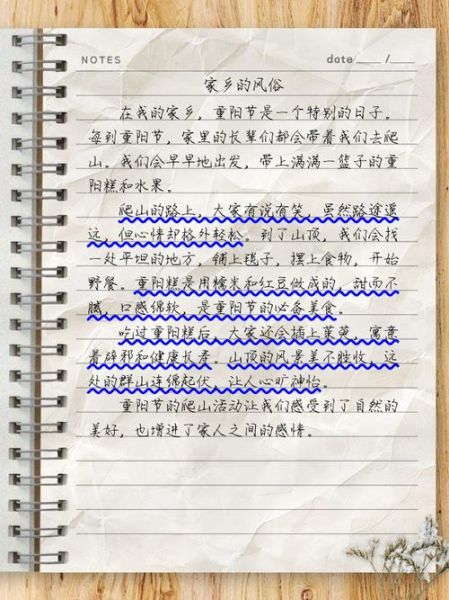 NOTES date ____ /____
家乡的风俗
在我的家乡，重阳节是一个特别的日子。
每到重阳节，家里的长辈们都会带着我们去爬
山。我们会早早地出发，带上满满一篮子的重
阳糕和水果。
爬山的路上，大家有说有笑，虽然路途遥
远，但心情却格外轻松。到了山顶，我们会找
一处平坦的地方，铺上毯子，摆上食物，开始
野餐。重阳糕是用糯米和红豆做成的，甜而不
腻，口感绵软，是重阳节的必备美食。
吃过重阳糕后，大家还会插上茱萸，寓意
着辟邪和健康长寿。山顶的风景美不胜收，远
处的群山连绵起伏，让人心旷神怡。
重阳节的爬山活动让我们感受到了自然的
美好，也增进了家人之间的感情。